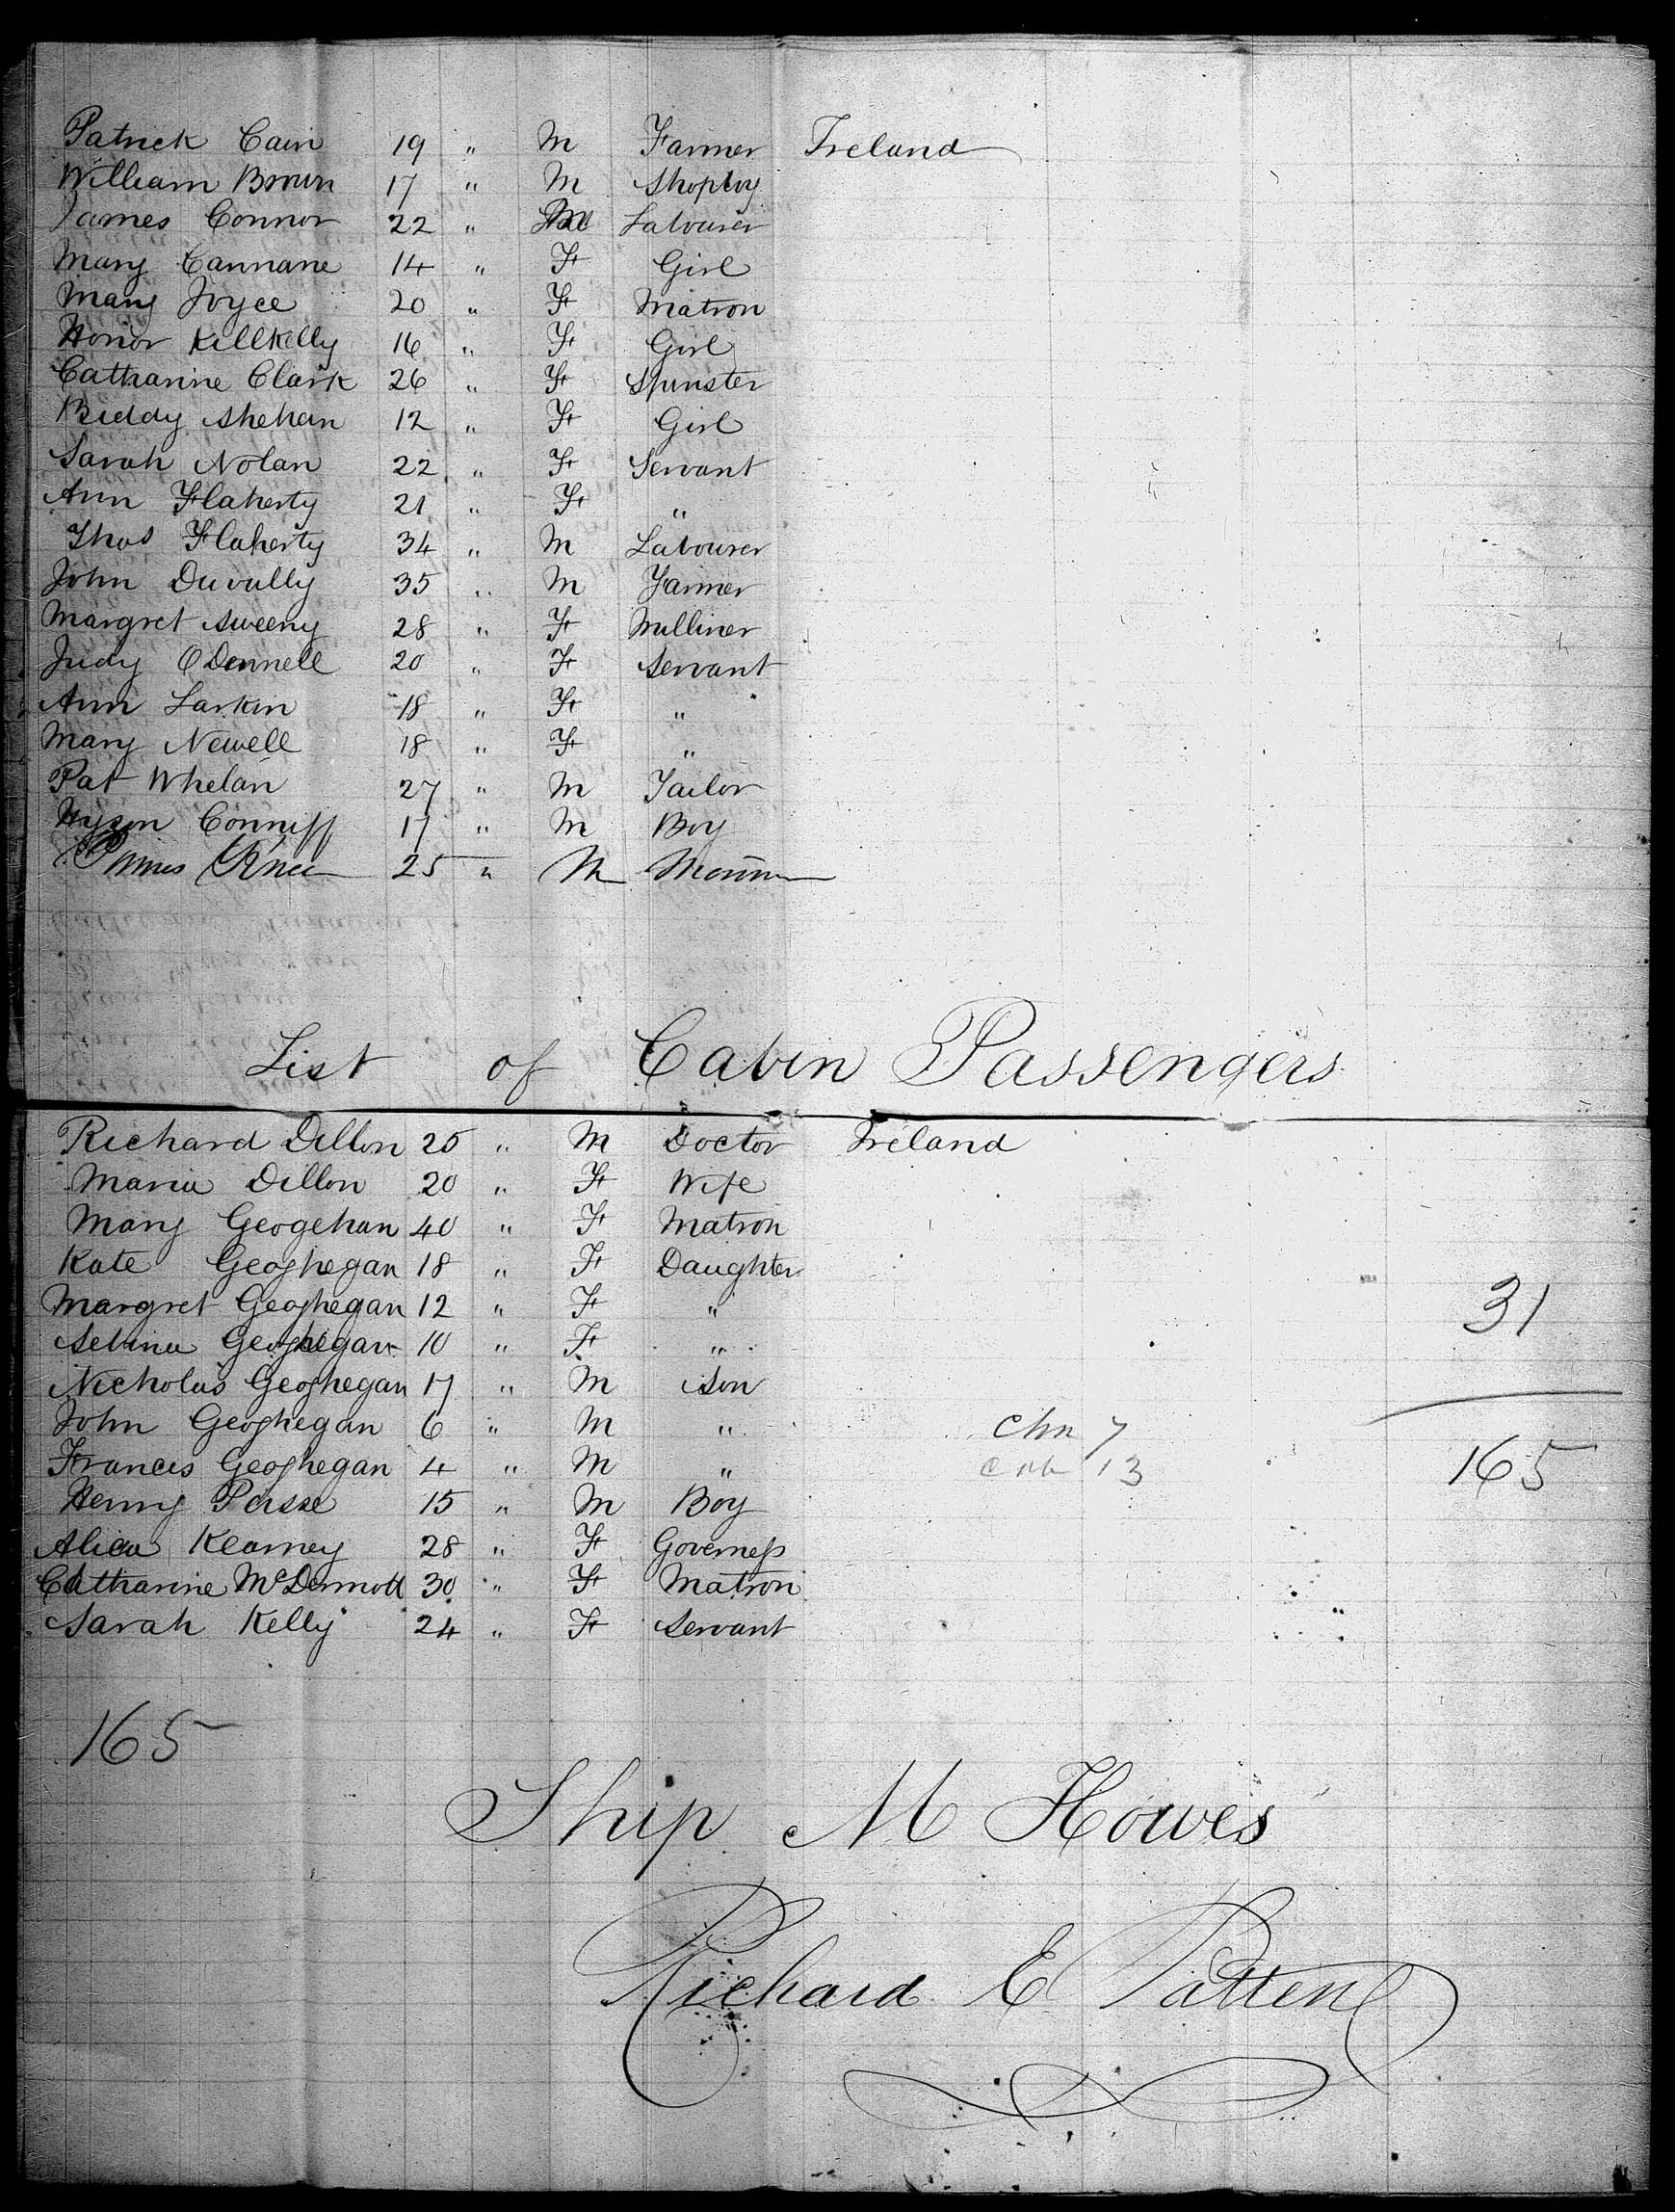 Patrick Cain 19 " M Farmer Ireland
William Brown 17 " M Shopboy
James Connor 22 " M Labourer
Mary Cannane 14 " F Girl
Mary Joyce 20 " F Matron
Honor Killkelly 16 " F Girl
Catharine Clark 26 " F Spinster
Biddy Shehan 12 " F Girl
Sarah Nolan 22 " F Servant
Ann Flaherty 21 " F "
Thos Flaherty 34 " M Labourer
John Duvally 35 " M Farmer
Margret Sweeny 28 " F Milliner
Judy O Donnell 20 " F Servant
Ann Larkin 18 " F "
Mary Newell 18 " F "
Pat Whelan 27 " M Tailor
Conniff 17 " M Boy
25 " M
List of Cabin Passengers
Richard Dillon 25 " M Doctor Ireland
Maria Dillon 20 " F Wife
Mary Geogehan 40 " F Matron
Kate Geoghegan 18 " F Daughter
Margret Geoghegan 12 " F "
31
Selina Geoghegan 10 " F "
Nicholas Geoghegan 17 " M Son
John Geoghegan 6 " M " Chn 7
Francis Geoghegan 4 " M " 13 165
Henry Persse 15 " M Boy
Alicia Kearney 28 " F Governess
Catharine McDermott 30 " F Matron
Sarah Kelly 24 " F Servant
165
Ship M Howes
Richard E Patten